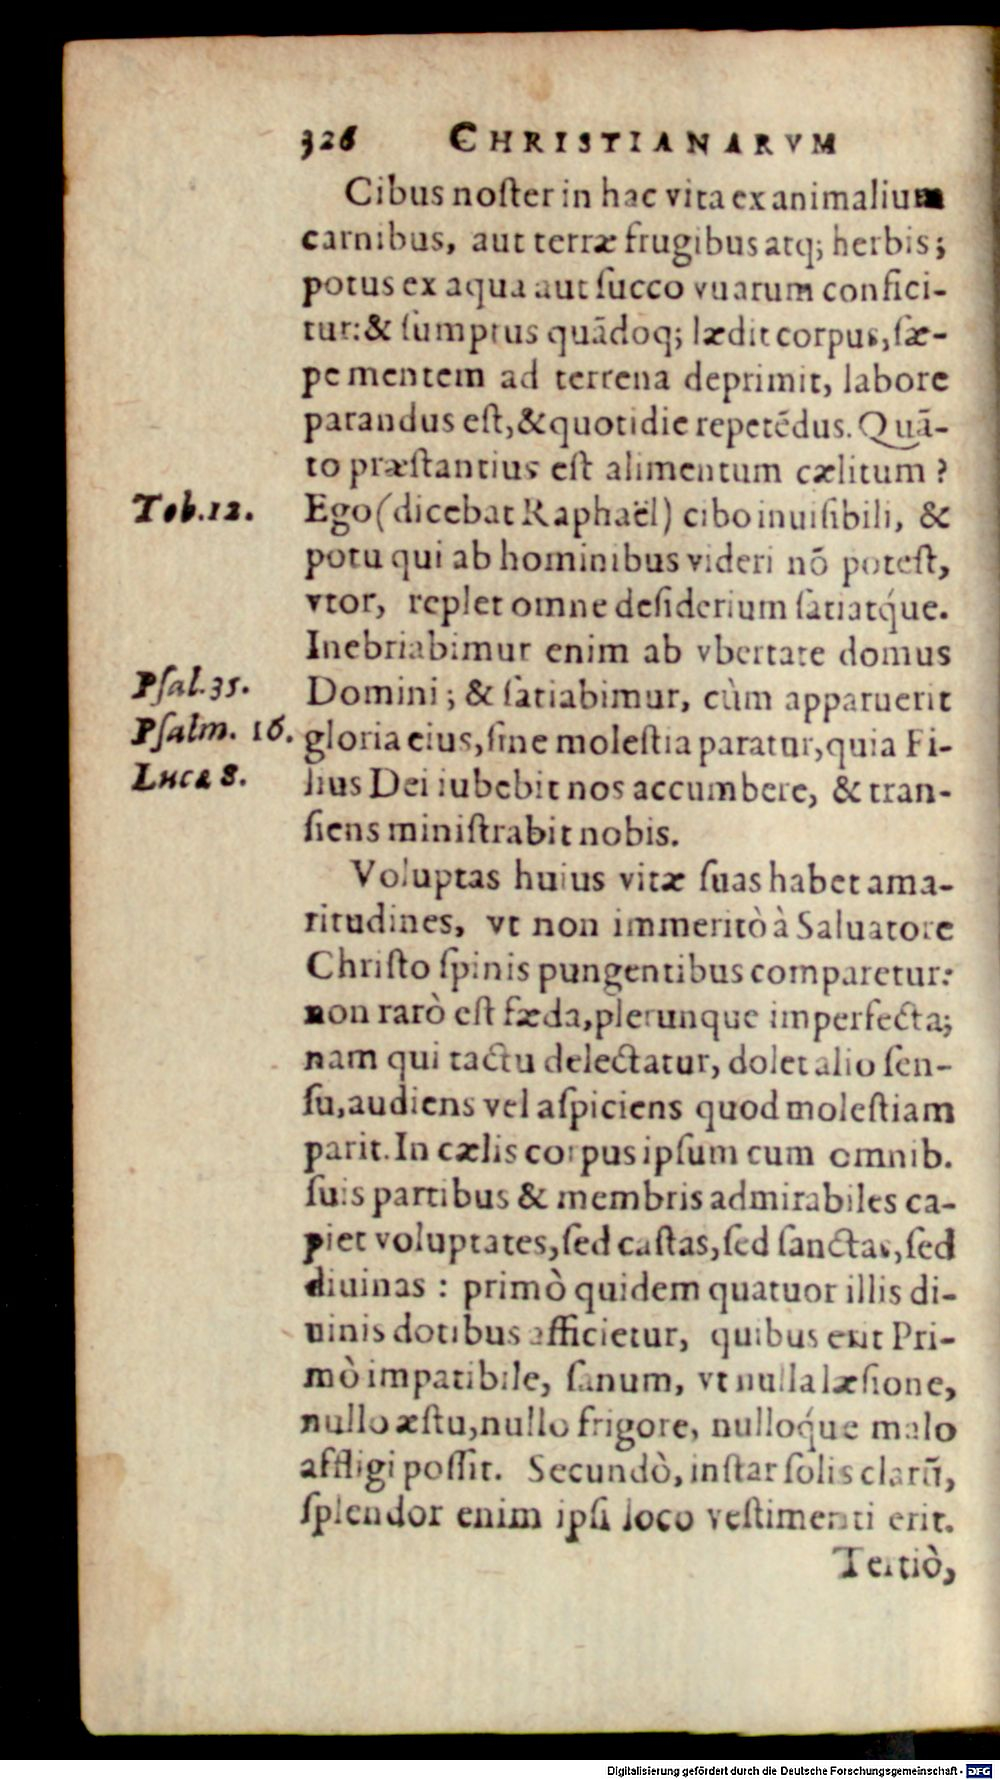 326 CHRISTIANARVM
Cibus noſter in hac vita ex animalium
carnibus, aut terræ frugibus atq; herbis;
potus ex aqua aut ſucco vuarum confici-
tur: & ſumptus quãdoq; lædit corpus, ſæ-
pe mentem ad terrena deprimit, labore
parandus eſt, & quotidie repetẽdus. Quã-
to præſtantius eſt alimentum cælitum ?
Tob. 12.
Ego (dicebat Raphaël) cibo inuiſibili, &
potu qui ab hominibus videri nõ poteſt,
vtor, replet omne deſiderium ſatiatq́ue.
Inebriabimur enim ab vbertate domus
Pſal. 35.
Domini ; & ſatiabimur, cùm apparuerit
Pſalm. 16.
gloria eius, ſine moleſtia paratur, quia Fi-
Lucæ 8.
lius Dei iubebit nos accumbere, & tran-
ſiens miniſtrabit nobis.
Voluptas huius vitæ ſuas habet ama-
ritudines, vt non immeritò à Saluatore
Chriſto ſpinis pungentibus comparetur:
non rarò eſt fæda, plerunque imperfecta;
nam qui tactu delectatur, dolet alio ſen-
ſu, audiens vel aſpiciens quod moleſtiam
parit. In cælis corpus ipſum cum omnib.
ſuis partibus & membris admirabiles ca-
piet voluptates, ſed caſtas, ſed ſanctas, ſed
diuinas : primò quidem quatuor illis di-
uinis dotibus afficietur, quibus erit Pri-
mò impatibile, ſanum, vt nulla læſione,
nullo æſtu, nullo frigore, nulloq́ue malo
affligi poſſit. Secundò, inſtar ſolis clarũ,
ſplendor enim ipſi loco veſtimenti erit.
Tertiò,
Digitalisierung gefördert durch die Deutsche Forschungsgemeinschaft - DFG